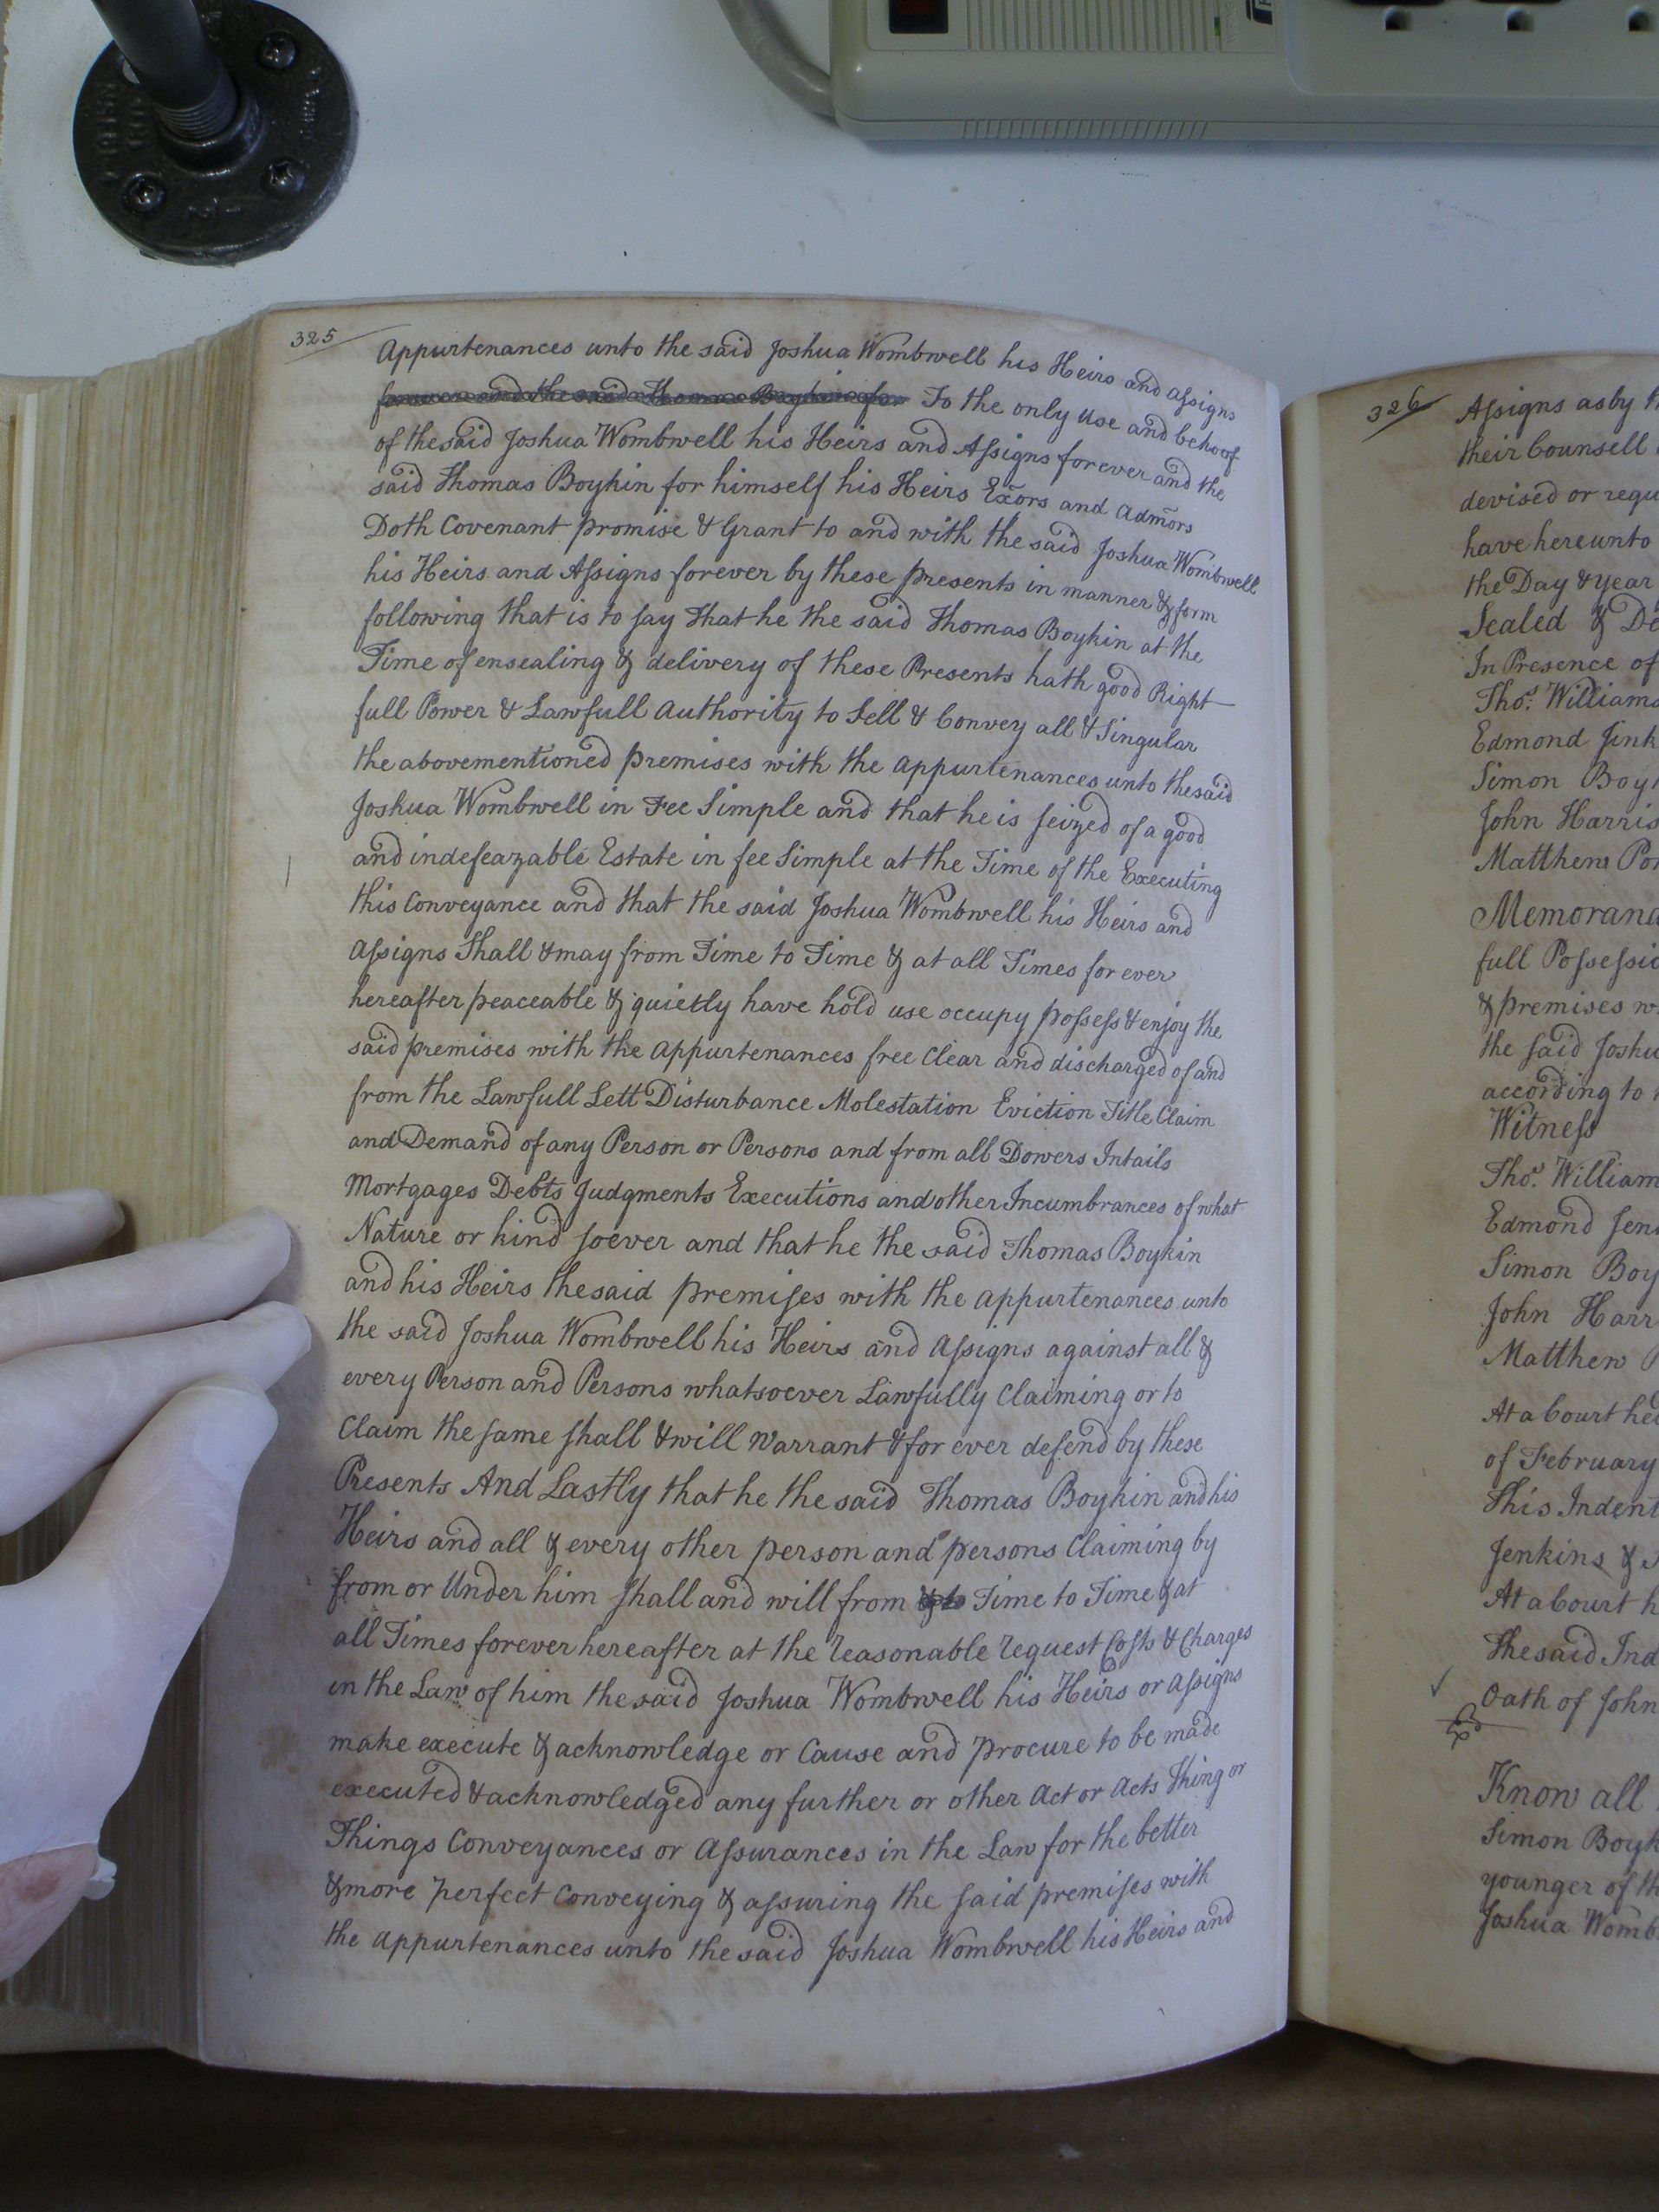 325
Appurtenances unto the said Joshua Wombwell his Heirs and assigns
forever and the said Thomas Boykin for To the only use and behoof
of the said Joshua Wombwell his Heirs and Assigns forever and the
said Thomas Boykin for himself his Heirs Exors and Admors
Doth Covenant promise & Grant to and with the said Joshua Wombwell
his Heirs and Assigns forever by these presents in manner & form
following that is to say That he the said Thomas Boykin at the
Time of ensealing & delivery of these Presents hath good Right
full Power & Lawfull Authority to Sell & Convey all & Singular
the abovementioned premises with the appurtenances unto the said
Joshua Wombwell in Fee Simple and that he is seized of a good
and indefeazable Estate in fee Simple at the Time of the Executing
this Conveyance and that the said Joshua Wombwell his Heirs and
Assigns Shall & may from Time to Time & at all Times for ever
hereafter peaceable & quietly have hold use occupy possess & enjoy the
said premises with the appurtenances free Clear and discharged of and
from the Lawfull Lett Disturbance Molestation Eviction Title Claim
and Demand of any Person or Persons and from all Dowers Intails
Mortgages Debts Judgments Executions and other Incumbrances of what
Nature or kind soever and that he the said Thomas Boykin
and his Heirs the said premises with the appurtenances unto
the said Joshua Wombwell his Heirs and Assigns against all &
every Person and Persons whatsoever Lawfully Claiming or to
Claim the same shall & will Warrant & for ever defend by these
Presents And Lastly that he the said Thomas Boykin and his
Heirs and all & every other person and persons Claiming by
from or Under him shall and will from & to Time to Time & at
all Times forever hereafter at the reasonable request Costs & Charges
in the Law of him the said Joshua Wombwell his Heirs or Assigns
make execute & acknowledge or Cause and procure to be made
executed & acknowledged any further or other Act or Acts Thing or
Things Conveyances or Assurances in the Law for the better
& more perfect Conveying & assuring the said premises with
the appurtenances unto the said Joshua Wombwell his Heirs and
326
Assigns as by
their Counsell
devised or
have hereunto
the Day & Year
Sealed &
In Presence of
Thos. Williams
Edmond
Simon
John Harris
Matthew
full
& premises
the said
according to
Witness
Thos. William
Edmond
Simon
John
Matthew
At a Court
of February
This
Jenkins &
At a Court
The said
Oath of John
Know all
Simon
younger of
Joshua